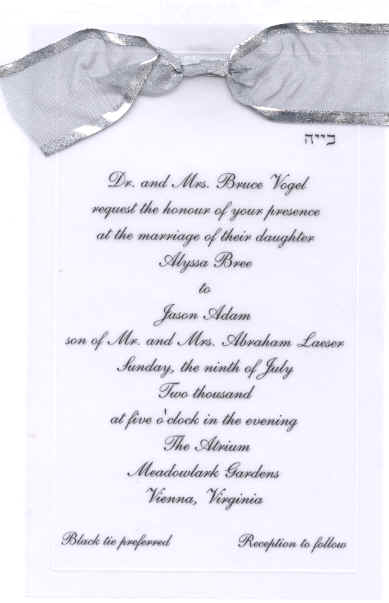 בייה
Dr. and Mrs. Bruce Vogel
request the honour of your presence
at the marriage of their daughter
Alyssa Bree
to
Jason Adam
son of Mr. and Mrs. Abraham Laeser
Sunday, the ninth of July
Two thousand
at five o'clock in the evening
The Atrium
Meadowlark Gardens
Vienna, Virginia
Black tie preferred Reception to follow